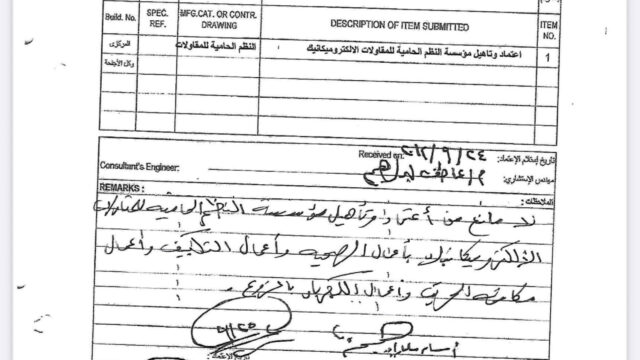 Build. No. SPEC. REF. MFG.CAT. OR CONTR. DRAWING DESCRIPTION OF ITEM SUBMITTED ITEM NO.
المركزي النظم الحامية للمقاولات اعتماد وتاهيل مؤسسة النظم الحامية للمقاولات الالكتروميكانيك 1
وكل الأجنحة
Received on: ٢٠١٢/٩/٢٤ تاريخ إستلام الإعتماد:
Consultant's Engineer: م/عاطف مهندس الإستشاري:
REMARKS : الملاحظات:
لا مانع من اعتماد وتأهيل مؤسسة النظم الحامية للمقاولات
الإلكتروميكانيك بأعمال الصحية وأعمال التكييف وأعمال
مكافحة الحريق وأعمال الكهرباء بالمشروع
تاريخ الإعتماد: